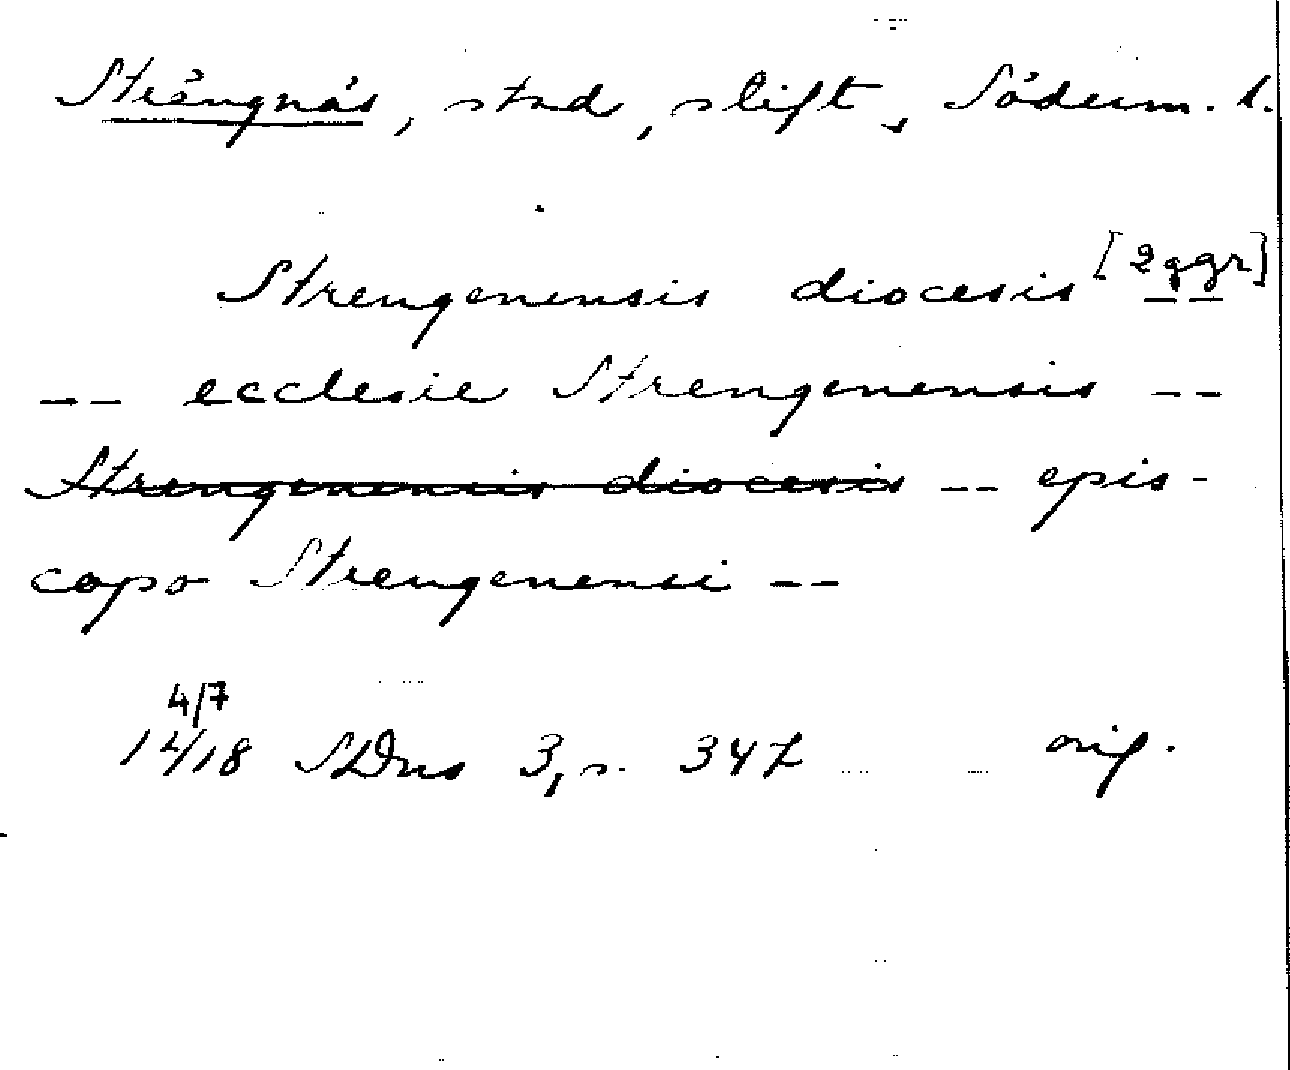 Strängnäs, stad, stift, Söderm. l.
Strengenensis diocesis [2 ggr]
-- ecclesie Strengenensis --
Strengenensis diocesis -- epis-
copo Strengenensi --
4/7
14/18 SDns 3, s. 347 orig.